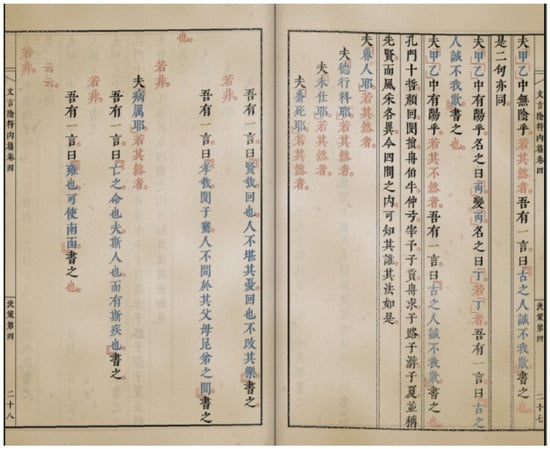 文言陰符內籍卷四
決策第四
二十七
夫甲乙中無陰乎。若其不然者。吾有一言。曰古之人誠不我欺。書之也。
是二句亦同
夫甲乙中有陽乎。名之曰丙。變丙名之曰丁。若丁者。吾有一言。曰古之
人誠不我欺。書之也。
夫甲乙中有陽乎。若其不然者。吾有一言。曰古之人誠不我欺。書之也。
孔門十哲顏回閔損冉伯牛仲弓宰予子貢冉求子路子游子夏並稱
先賢而風采各異今四問之內可知其誰其法如是
夫魯人耶。若其然者。
夫德行科耶。若其然者。
夫未仕耶。若其然者。
夫蚤死耶。若其然者。
吾有一言。曰賢哉回也人不堪其憂回也不改其樂。書之
若非。
吾有一言。曰孝哉閔子騫人不間於其父母昆弟之間。書之
也。
若非。
夫病癘耶。若其然者。
吾有一言。曰亡之命也夫斯人也而有斯疾也。書之
若非。
吾有一言。曰雍也可使南面。書之也。
云云。
若非。
文言陰符內籍卷四
決策第四
二十八